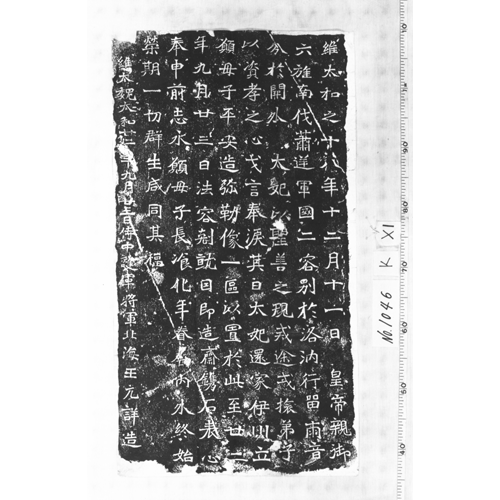 維太和之十八年十二月十一日皇帝親御
六旌南伐蕭逆軍國二容別於洛汭行留兩音
分於闕外太妃以聖善之規戒途戎旅弟子
以資孝之心戈言奉淚其日太妃還家伊川立
願母子平安造弥勒像一區以置於此至廿二
年九月廿三日法容剋就因即造齋鐫石表心
奉申前志永願母子長飡化年眷屬內外終始
榮期一切群生咸同其福
維大魏太和廿二年九月廿三日侍中護軍將軍北海王元詳造
No.1046 K XI